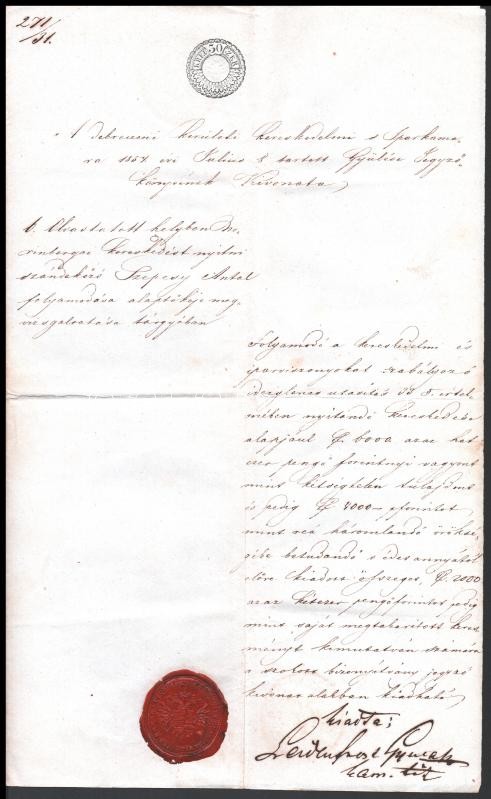 271/
/31.
30
A debreczeni kerületi kereskedelmi s Iparkama-
ra 1854 évi Julius 8 tartott Gyülése Jegyző-
könyvének Kivonata
6. Olvastatott helyben
kereskedést nyitni
szándékozó Szepesy Antal
folyamodása alaptőkéje meg-
vizsgáltatása tárgyában
Folyamodó a kereskedelmi és
iparviszonyokat szabályozó
ideiglenes utasítás 33 §. értel-
mében nyitandó kereskedése
alapjául 6000 azaz hat
ezer pengő forintnyi vagyont
mint kétségtelen tulajdont
és pedig 4000 pforintot
mint reá háromlandó öröksé-
gébe betudandó s édes annyától
előre kiadott összeget, 2000
azaz kétezer pengőforintot pedig
mint saját megtakarított keres
ményt kimutatván számára
a szokott bizonyítvány jegyző
kivonat alakban kiadható
Kiadta;
kam. tit